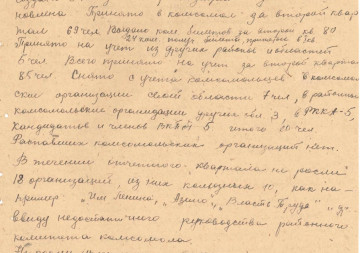 новлена Принято в комсомол за второй квар
тал 63 чел Выдано ком билетов за второй кв 80
Принято на учет из других районов и областей
5 чел. Всего принято на учет за второй квартал
85 чел Снято с учета комсомольцев в комсомоль
ские организации своей области 7 чел, в районные
комсомольские организации других обл 3, в РККА-5,
Кандидатов и членов ВКП(б) 5 итого 20 чел.
Распавших комсомольских организаций нет.
В течении отчетного квартала не росли
18 организаций, из них колхозных 10, как на-
пример "Им Ленина", "Власть Труда" и др
Ввиду недостаточного руководства районного
комитета комсомола.